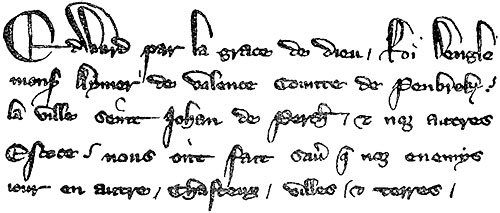 Edward par la grace de dieu / Roi Dengle
mons Aymer de Valence Counte de Penbrok
la ville seint Johan de Perch / & noz autres
Escoce nous ont fait sav q noz enemys
iour en autre / Chasteux / villes / & terres /